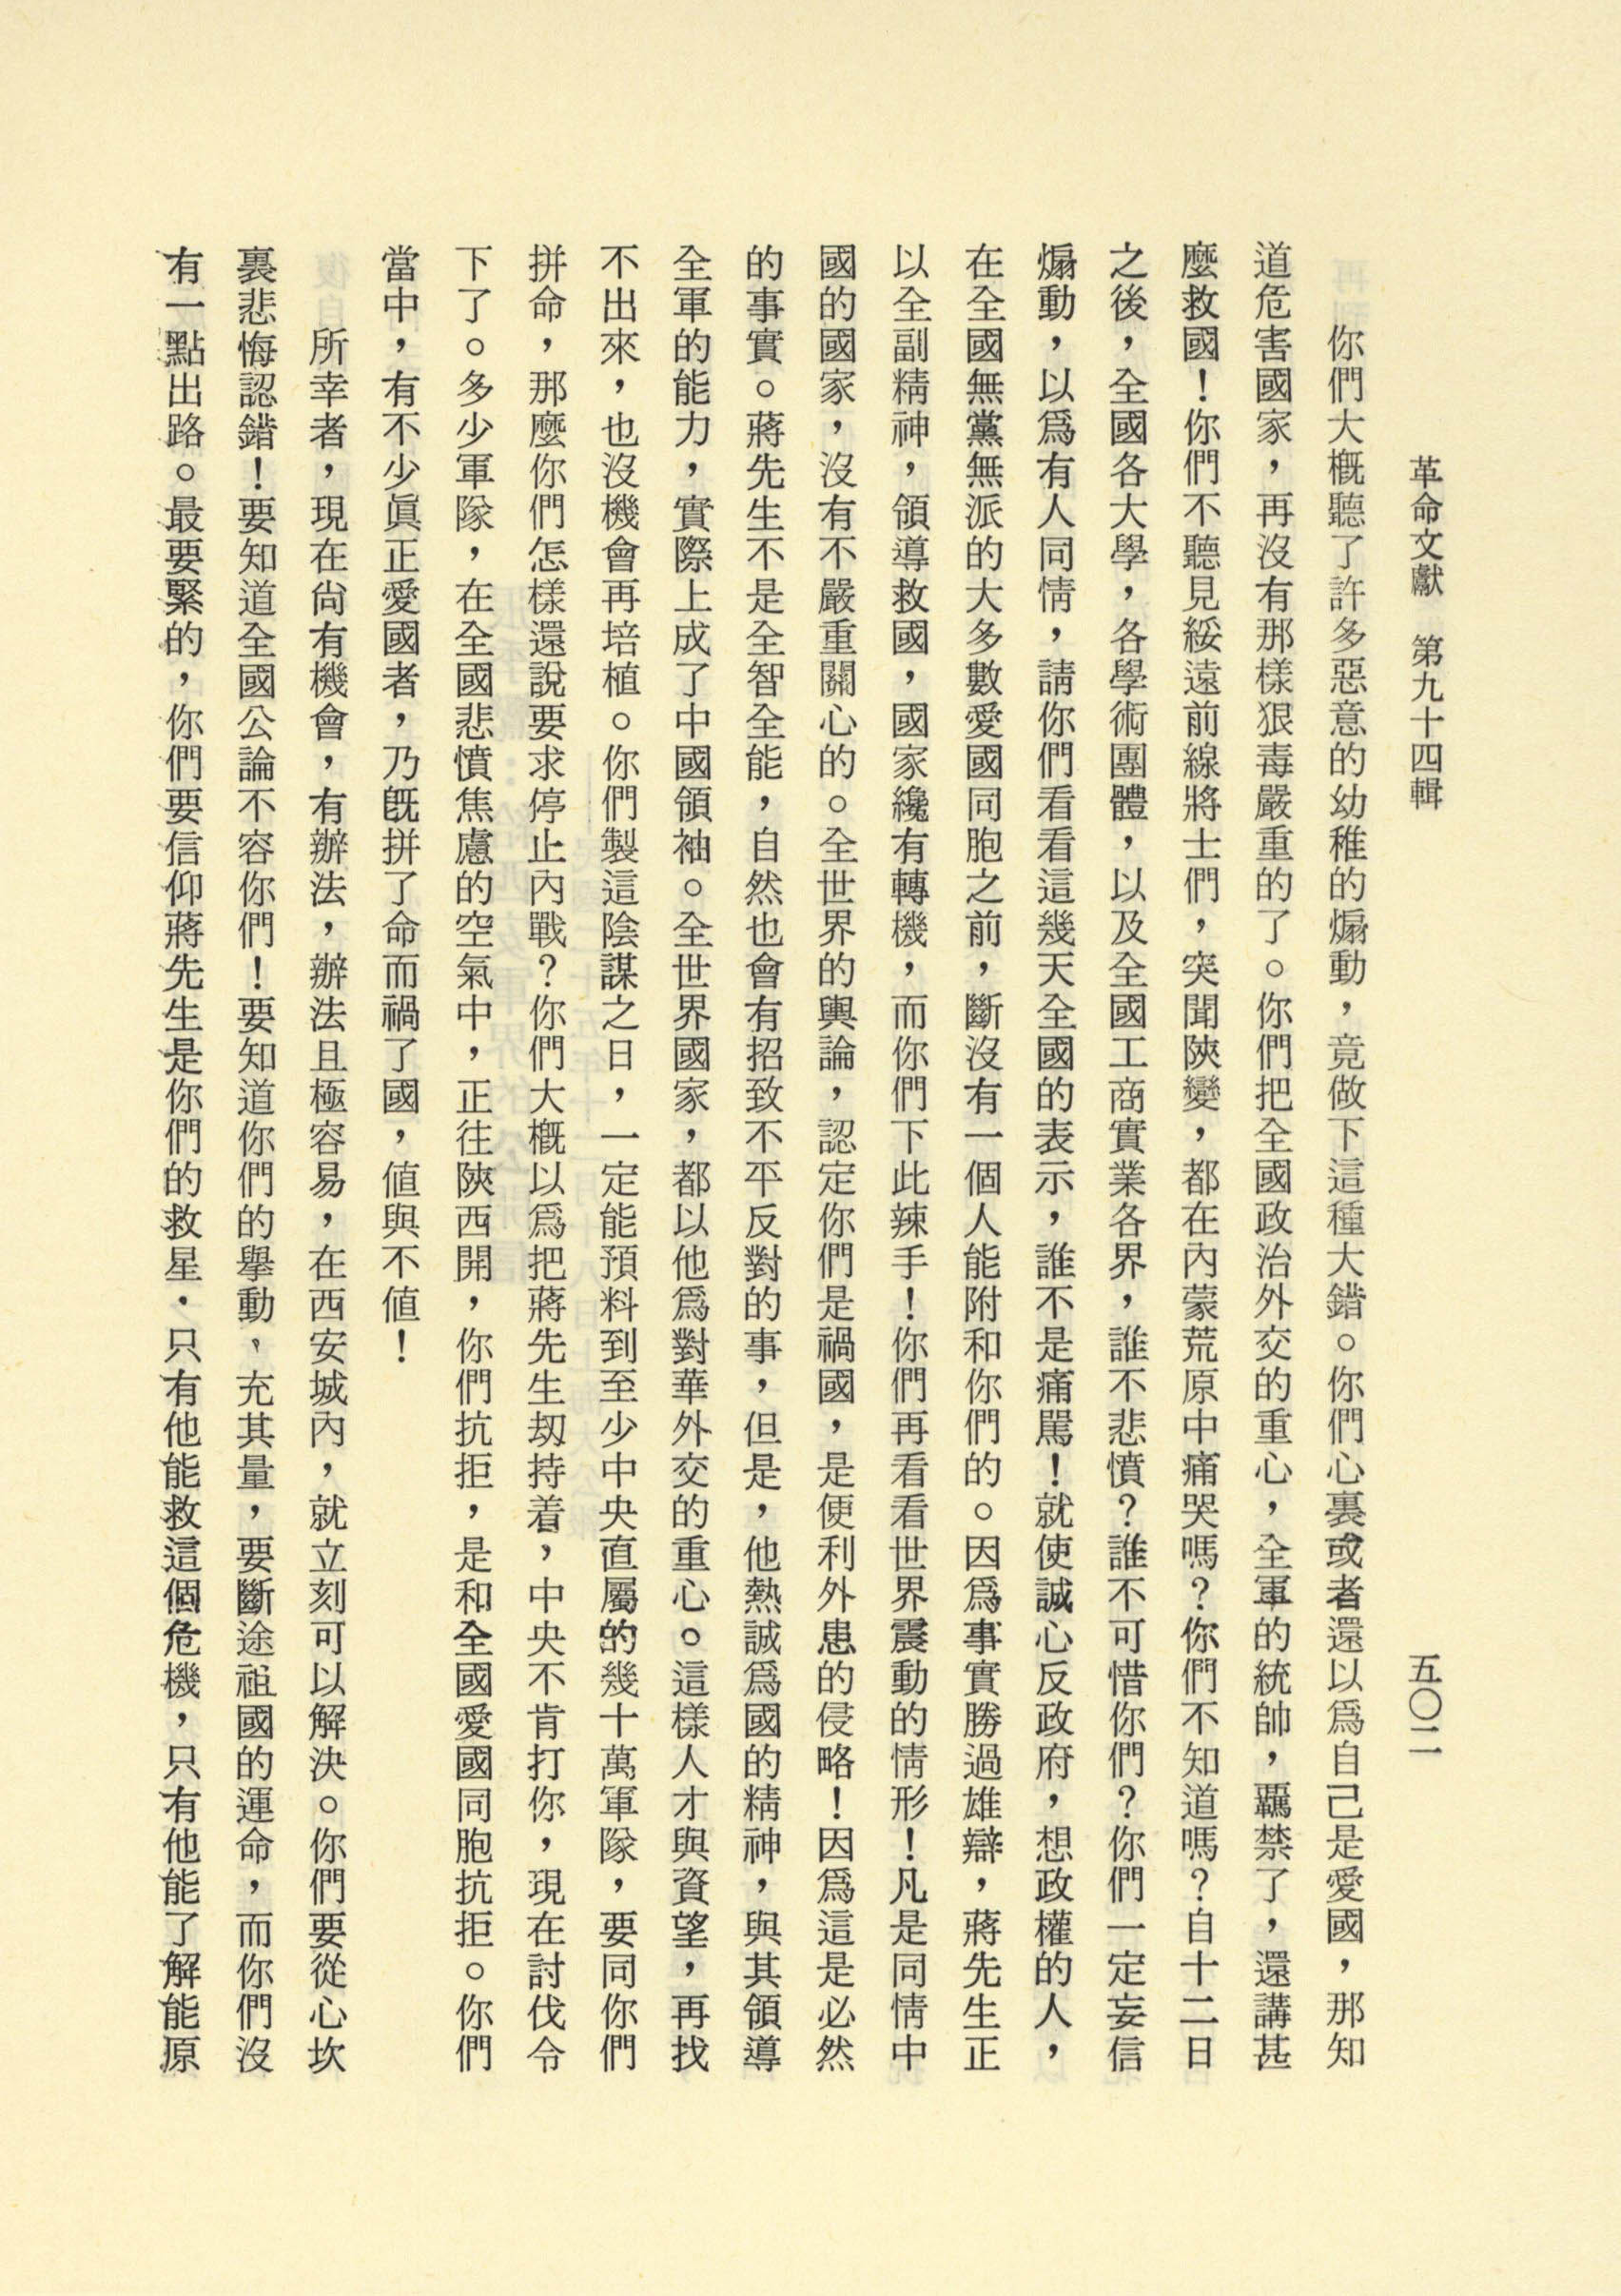 革命文獻　第九十四輯
五〇二
你們大槪聽了許多惡意的幼稚的煽動，竟做下這種大錯。你們心裏或者還以爲自己是愛國，那知
道危害國家，再沒有那樣狠毒嚴重的了。你們把全國政治外交的重心，全軍的統帥，羈禁了，還講甚
麼救國！你們不聽見綏遠前線將士們，突聞陝變，都在內蒙荒原中痛哭嗎？你們不知道嗎？自十二日
之後，全國各大學，各學術團體，以及全國工商實業各界，誰不悲憤？誰不可惜你們？你們一定妄信
煽動，以爲有人同情，請你們看看這幾天全國的表示，誰不是痛罵！就使誠心反政府，想政權的人，
在全國無黨無派的大多數愛國同胞之前，斷沒有一個人能附和你們的。因爲事實勝過雄辯，蔣先生正
以全副精神，領導救國，國家纔有轉機，而你們下此辣手！你們再看看世界震動的情形！凡是同情中
國的國家，沒有不嚴重關心的。全世界的輿論，認定你們是禍國，是便利外患的侵略！因爲這是必然
的事實。蔣先生不是全智全能，自然也會有招致不平反對的事，但是，他熱誠爲國的精神，與其領導
全軍的能力，實際上成了中國領袖。全世界國家，都以他爲對華外交的重心。這樣人才與資望，再找
不出來，也沒機會再培植。你們製這陰謀之日，一定能預料到至少中央直屬的幾十萬軍隊，要同你們
拼命，那麼你們怎樣還說要求停止內戰？你們大槪以爲把蔣先生刼持着，中央不肯打你，現在討伐令
下了。多少軍隊，在全國悲憤焦慮的空氣中，正往陝西開，你們抗拒，是和全國愛國同胞抗拒。你們
當中，有不少眞正愛國者，乃旣拼了命而禍了國，值與不值！
所幸者，現在尙有機會，有辦法，辦法且極容易，在西安城內，就立刻可以解決。你們要從心坎
裏悲悔認錯！要知道全國公論不容你們！要知道你們的舉動，充其量，要斷送祖國的運命，而你們沒
有一點出路。最要緊的，你們要信仰蔣先生是你們的救星．只有他能救這個危機，只有他能了解能原